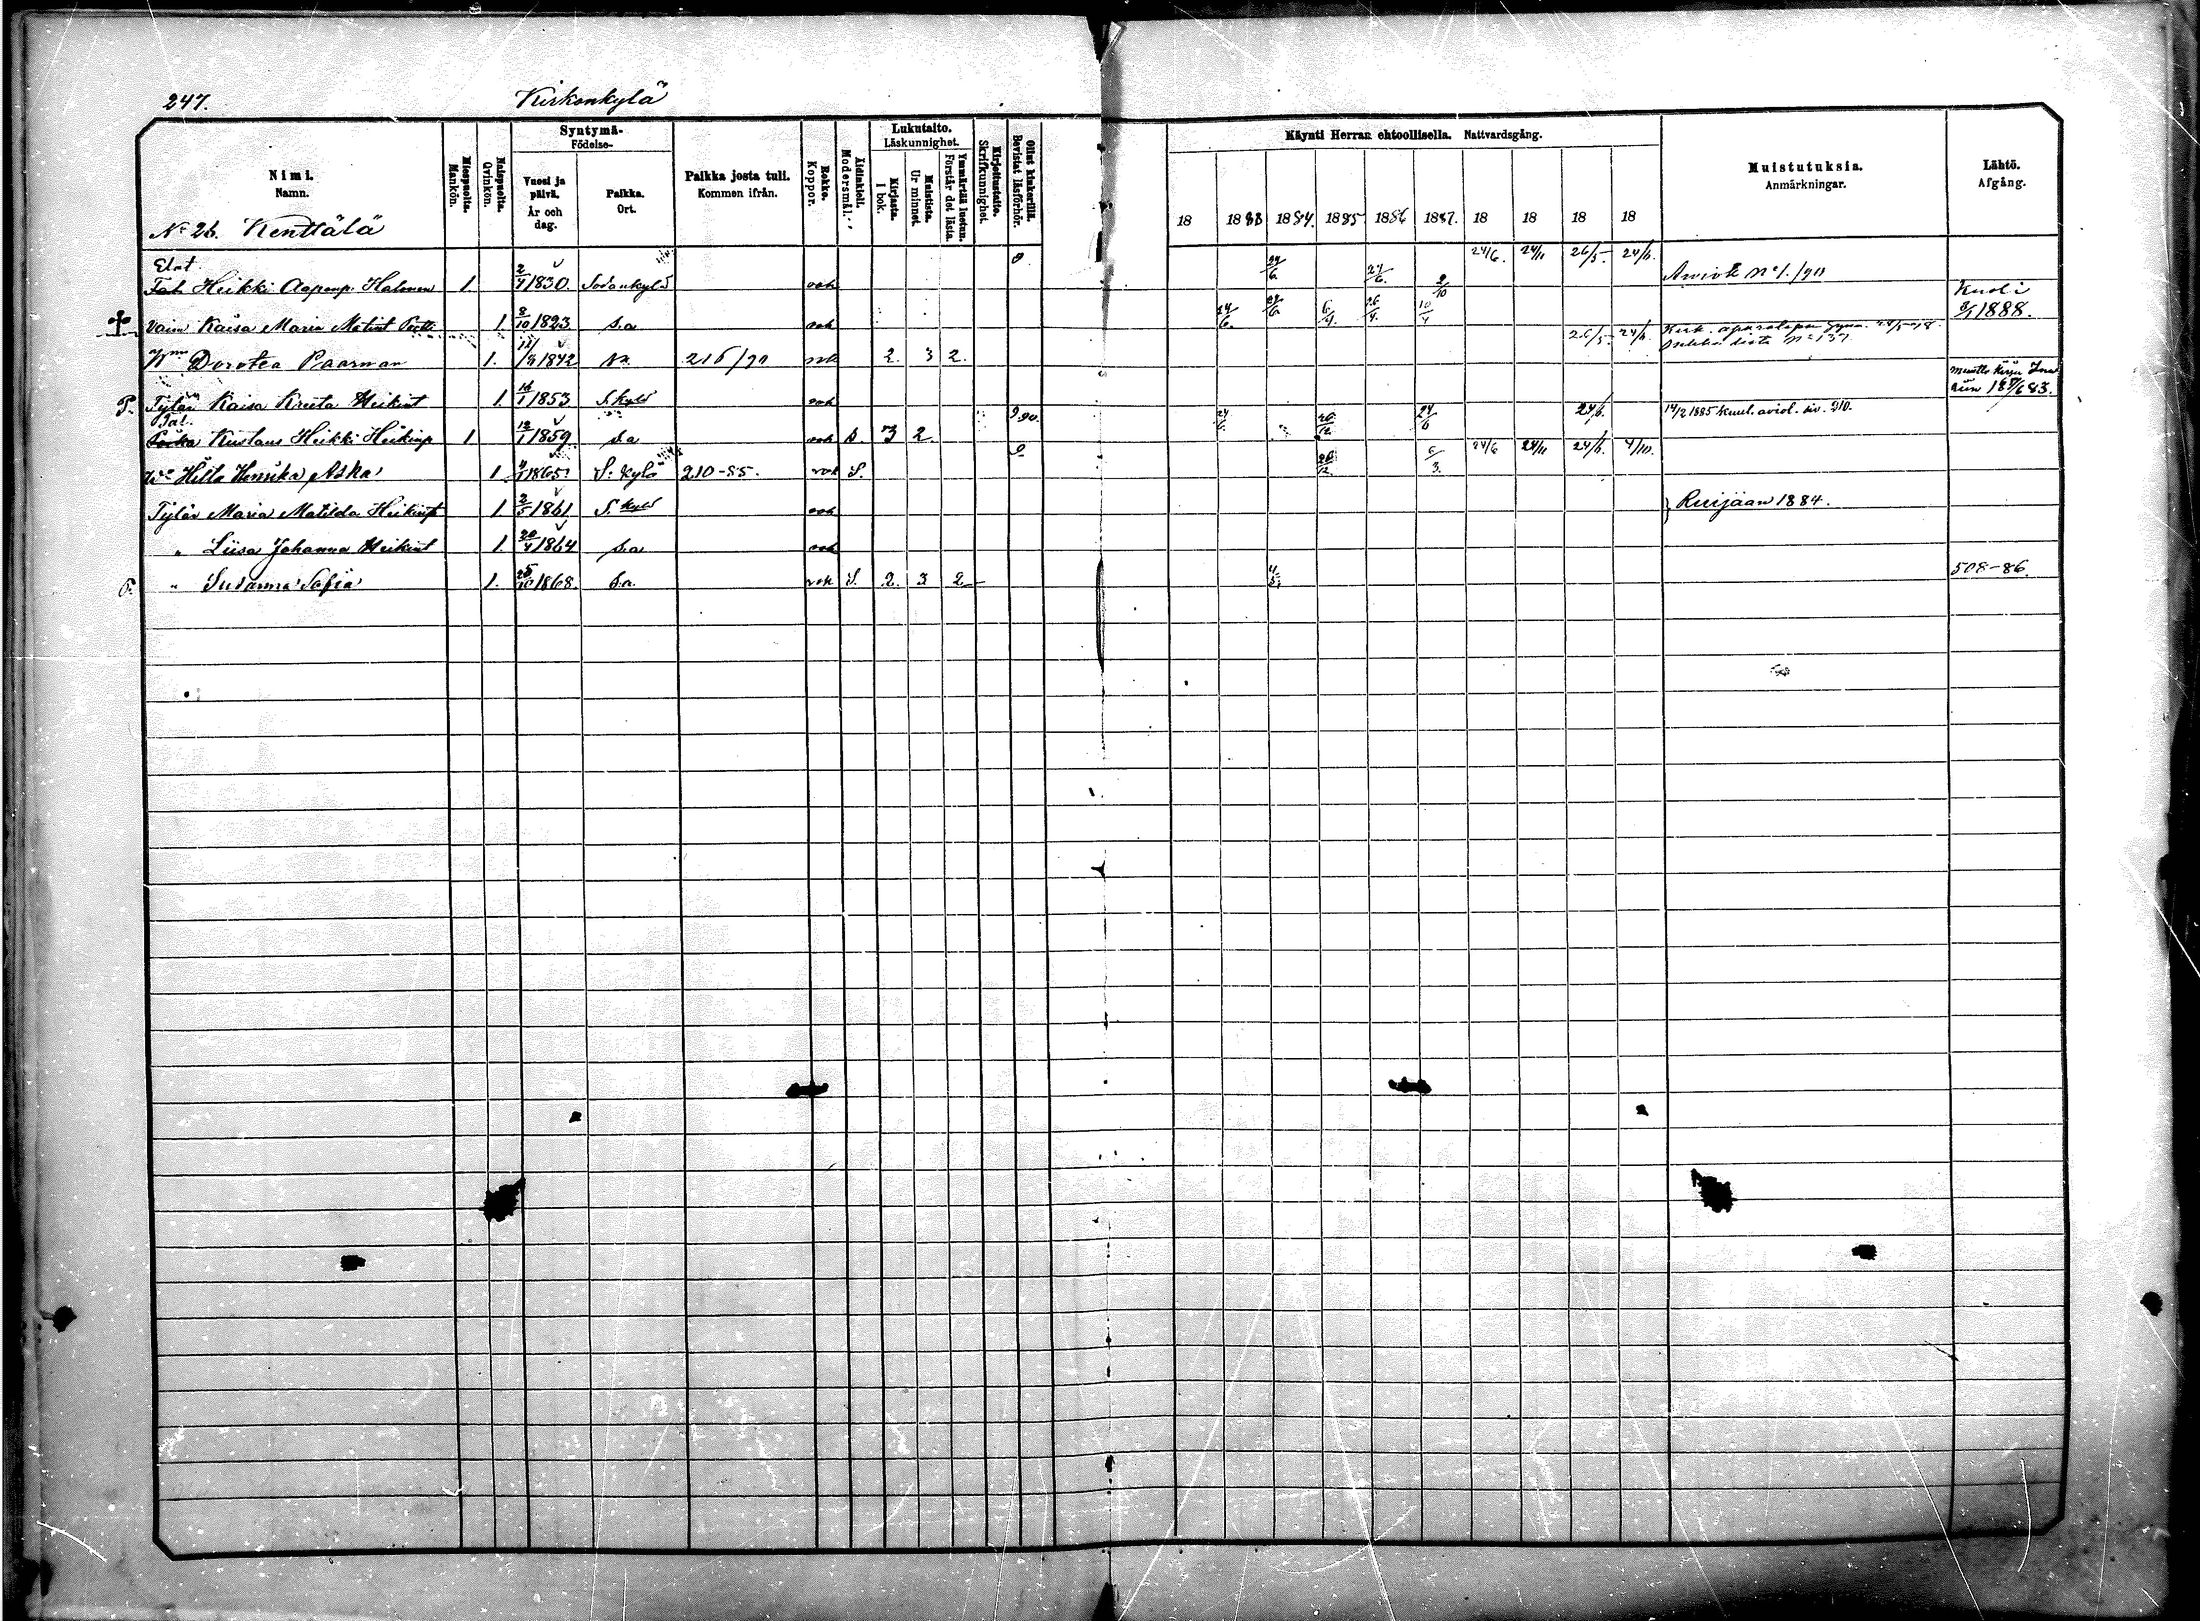 247.
Kirkonkylä
Nimi.
Namn.
Miespuolta.
Mankön.
Naispuolta.
Qvinkön.
Syntymä-
Födelse-
Vuosi ja päivä.
År och dag.
Paikka.
Ort.
Paikka josta tuli.
Kommen ifrån.
Rokko.
Koppor.
Äidinkieli.
Modersmål.
Lukutaito.
Läskunnighet.
Kirjasta.
I bok.
Muistista.
Ur minnet.
Ymmärtää luetun.
Förstår det lästa.
Kirjoitustaito.
Skrifkunnighet.
Ollut kinkerillä.
Bevistat läsförhör.
Käynti Herran ehtoollisella. Nattvardsgång.
18 1883 1884. 1885 1886 1887. 18 18 18 18
Muistutuksia.
Anmärkningar.
Lähtö.
Afgång.
No 26. Kenttälä
Elat.
Heikki Aapenp. Halonen 1. 2/4 1830. Sodankylä rok 24/6 24/6. 2/10 24/6. 24/11 26/5. 24/6. No 1./911
Vaim Kaisa Maria Matint 1. 8/10 1823 s.a rok 24/6. 24/6 6/4. 26/4. 10/4 Kuoli 1888.
Dorotea Paarman 1. 1842 216/90 rok 2. 3 2. 26/5. 24/6.
T. Tytär Kaisa Kreeta Heikint 1. 16/1 1853 S.kylä rok
Poika Kustaus Heikki Heikinp 1 12/1 1859 s.a rok s. 3 2 9.90. 24/6. 26/12. 24/6 24/6. 14/2 1885 kuul. aviol. siv. 210.
Hilta Henrika Aska 1 1865 S. kylä 210-85. rok S. 26/12. 6/3. 24/6 24/11 24/6. 4/10.
Tytär Maria Matilda Heikint 1 2/5 1861 S. kylä rok } Ruijaan 1884.
" Liisa Johanna Heikint 1. 20/4 1864 s.a rok
" Susanna Sofia 1. 25/10 1868. s.a. rok S. 2. 3 2 4/5. 508-86.